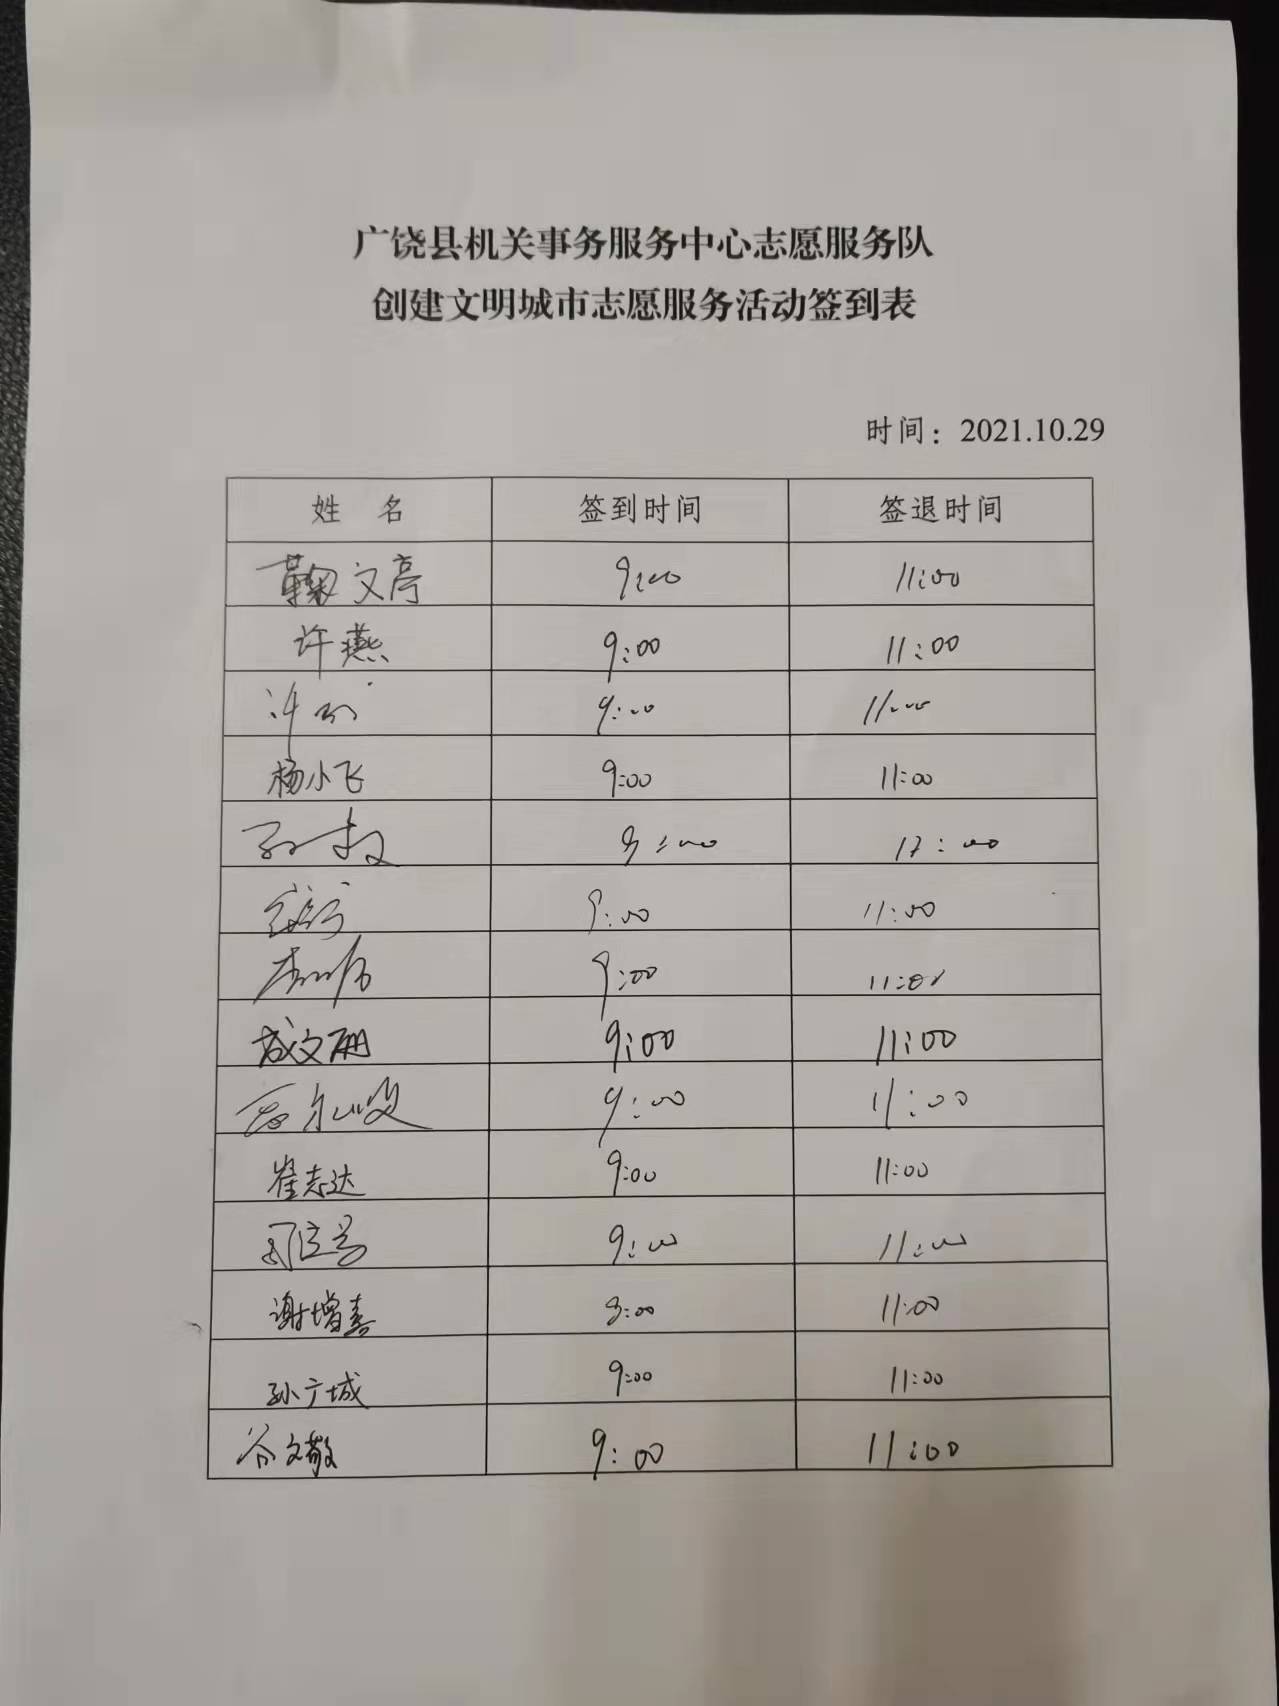 广饶县机关事务服务中心志愿服务队
创建文明城市志愿服务活动签到表
时间：2021.10.29
姓 名 签到时间 签退时间
鞠文亭 9:00 11:00
许燕 9:00 11:00
9:00 11:00
杨小飞 9:00 11:00
9:00
9:00 11:00
9:00 11:00
成文珊 9:00 11:00
9:00 11:00
崔志达 9:00 11:00
9:00 11:00
谢增喜 9:00 11:00
孙广城 9:00 11:00
谷文敬 9:00 11:00